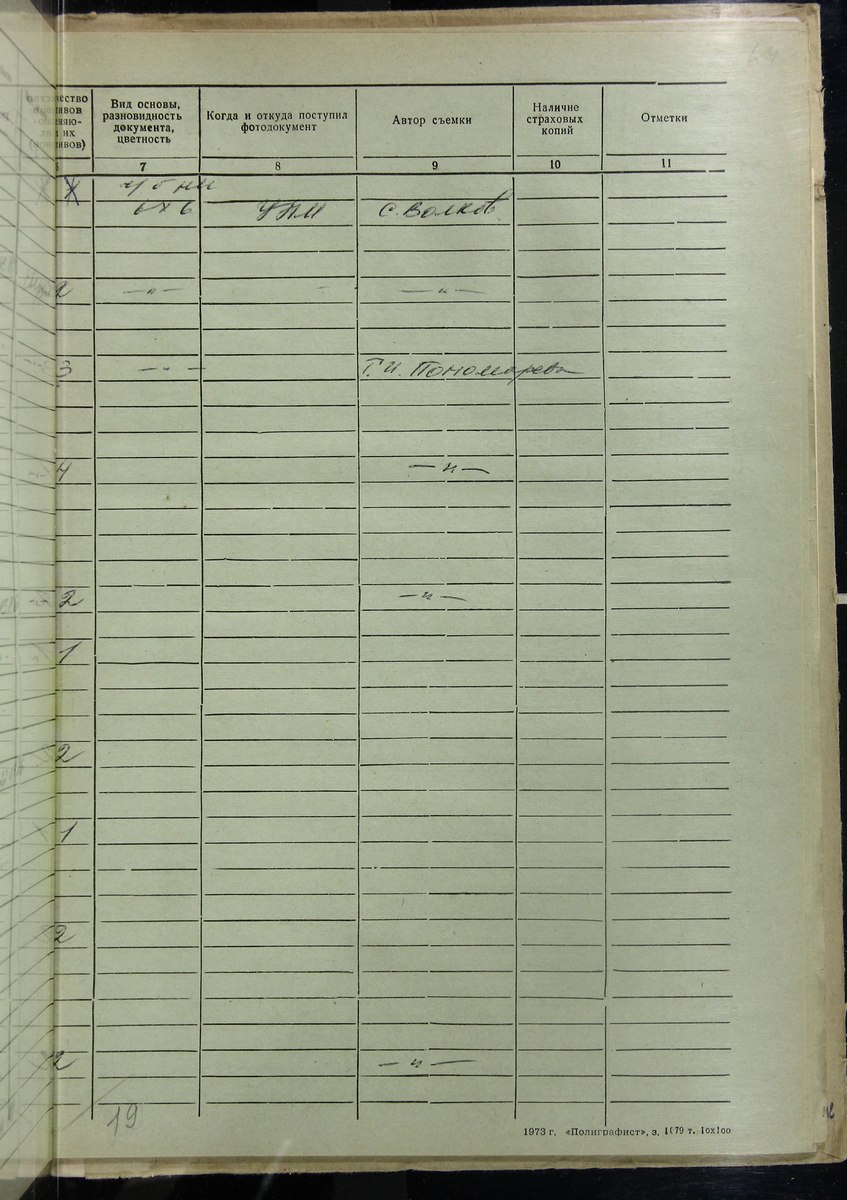 64
Вид основы, разновидность документа, цветность
Когда и откуда поступил фотодокумент
Автор съемки
Наличие страховых копий
Отметки
7 8 9 10 11
6х6 С. Волков
2 —〃— —〃—
3 —〃— Т.И. Пономарева
4 —〃—
2 —〃—
1
2
1
2
2 —〃—
19
1973 г. «Полиграфист», з. 1079 т. 10х100